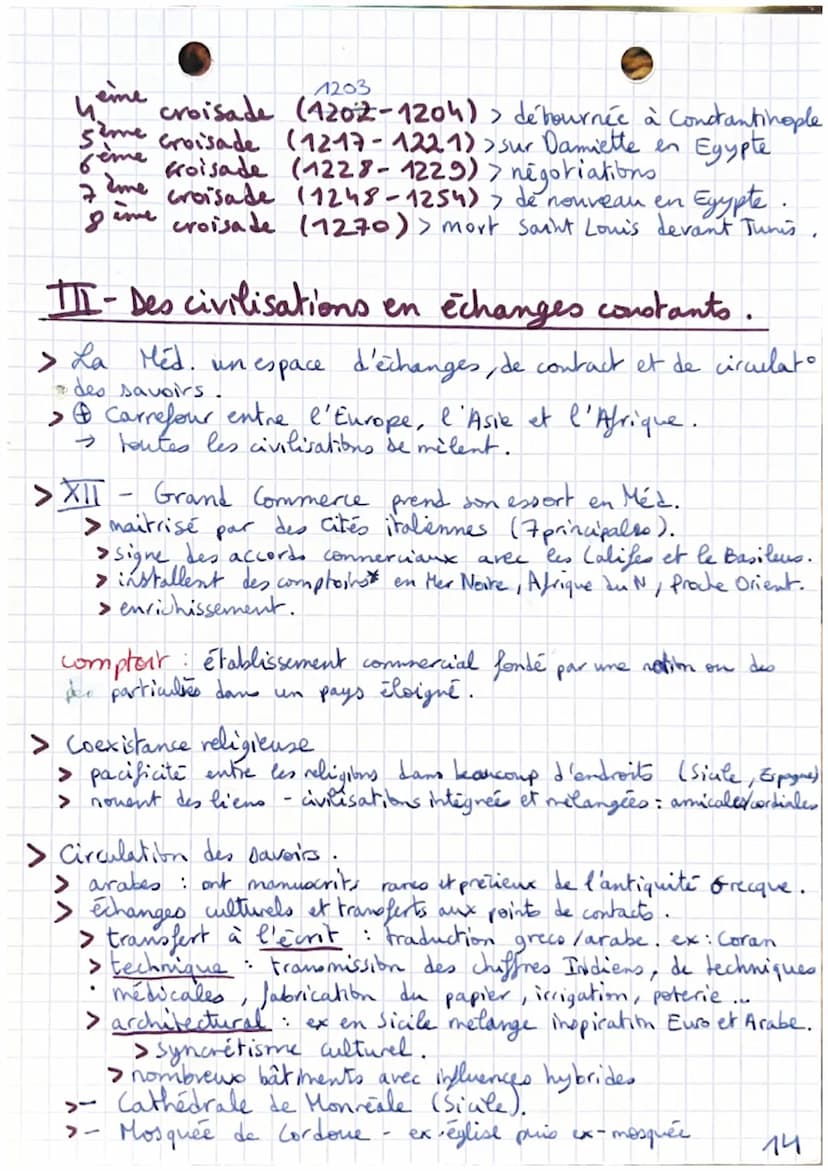 1203
4ème croisade (1202-1204) > détournée à Constantinople
5ème croisade (1217-1221) > sur Damiette en Egypte
6ème croisade (1228-1229) > négotiations
7ème croisade (1248-1254) > de nouveau en Egypte.
8ème croisade (1270) > mort Saint Louis devant Tunis.
III - Des civilisations en échanges constants.
> La Méd. un espace d'échanges, de contact et de circulat°
des savoirs.
> ⊕ Carrefour entre l'Europe, l'Asie et l'Afrique.
→ toutes les civilisations se mêlent.
> XII - Grand Commerce prend son essort en Méd.
> maitrisé par des Cités italiennes (7 principales).
> signe des accords commerciaux avec les Califes et le Basileus.
> installent des comptoirs* en Mer Noire, Afrique du N, Proche Orient.
> enrichissement.
comptoir : établissement commercial fondé par une nation ou des
des particuliés dans un pays éloigné.
> Coexistance religieuse
> pacificité entre les religions dans beaucoup d'endroits (Sicile, Espagne)
> nouent des liens - civilisations intégrées et mélangées : amicales/cordiales
> Circulation des savoirs.
> arabes : ont manuscrits rares et précieux de l'antiquité Grecque.
> échanges culturels et transferts aux points de contacts.
> transfert à l'écrit : traduction greco/arabe. ex : Coran
> technique : transmission des chiffres Indiens, de techniques
médicales, fabrication du papier, irrigation, poterie ...
> architectural : ex en Sicile mélange inspiration Euro et Arabe.
> syncrétisme culturel.
> nombreux bâtiments avec influences hybrides
>- Cathédrale de Monréale (Sicile).
>- Mosquée de Cordoue - ex-église puis ex-mosquée
14